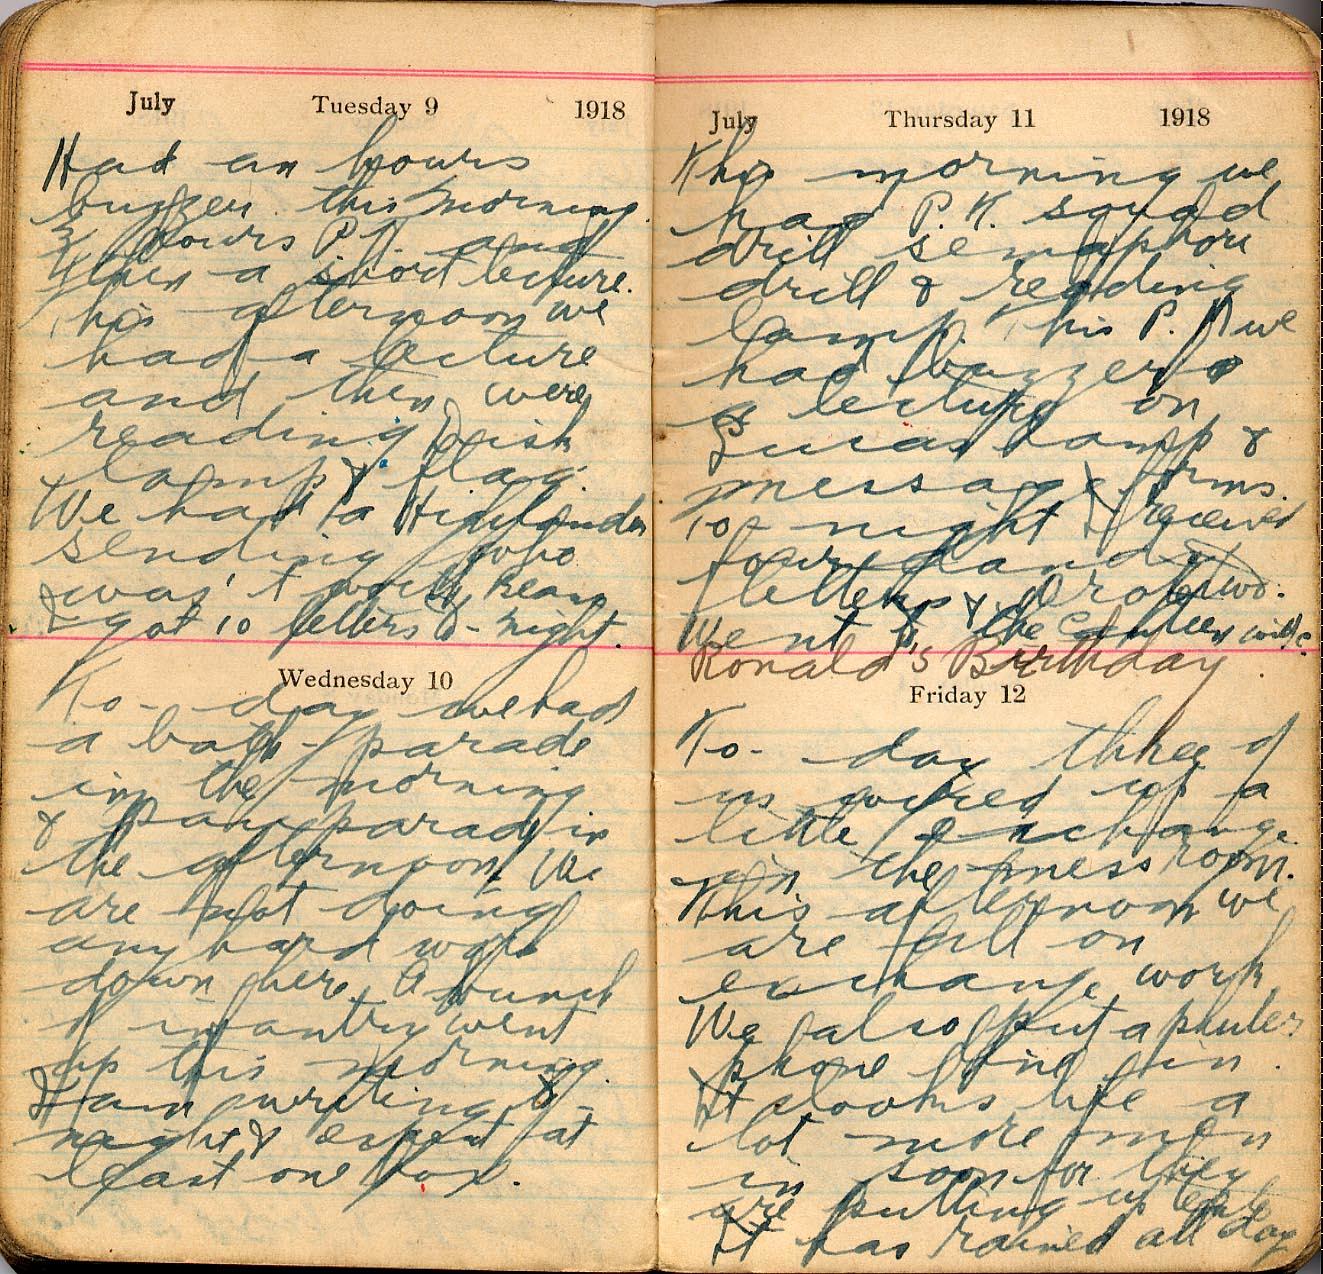 July Tuesday 9 1918
Had an hours
buzzer this morning.
hours P.T. and
then a short lecture.
This afternoon we
had a lecture
and then were
reading disk
lamp & flag.
We had a Highlander
sending who
was't worth beans
I got 10 letters to-night.
Wednesday 10
To-day we had
a bath parade
in the morning
& pay parade in
the afternoon. We
are not doing
any hard work
down here. A bunch
of infantry went
up this morning.
I am writing to-
night & expect at
least one box.
July Thursday 11 1918
This morning we
had P.T. squad
drill semaphore
drill & reading
lamp. This P.M we
had buzzer &
a lecture on
Lucas lamp &
message forms.
To-night I received
four dandy
letters & wrote two.
Went to the
Ronald's Birthday.
Friday 12
To-day three of
us wired up a
little exchange
in the mess room.
This afternoon we
are all on
exchange work.
We also put a
phone line in.
It looks like a
lot more men
in soon for they
are putting up tents
It has rained all day